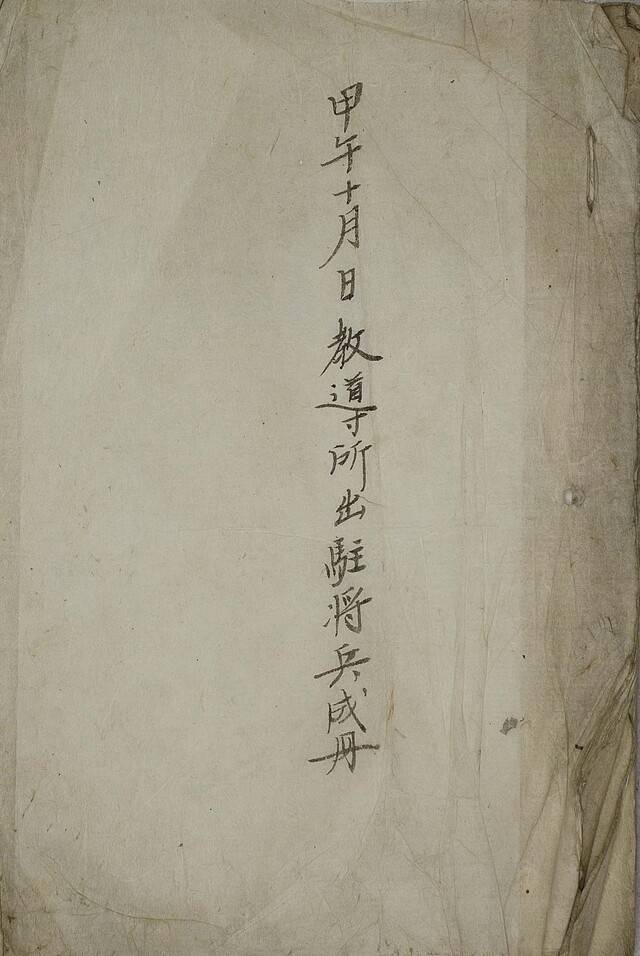 甲午十月日教導所出駐将兵成冊